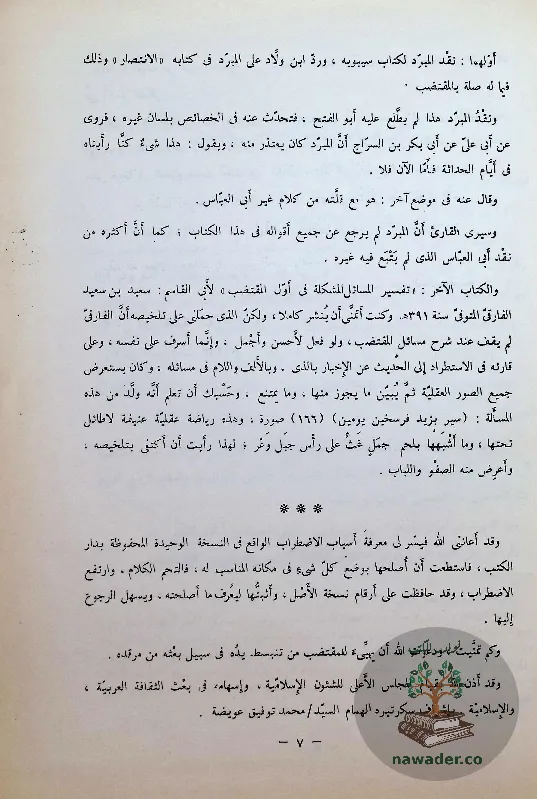 أوّلهما : نقْد المبرّد لكتاب سيبويه ، وردّ ابن ولّاد على المبرّد فى كتابه «الانتصار» وذلك
فيما له صلة بالمقتضب .
ونقْدُ المبرّد هذا لم يطَّلع عليه أبو الفتح ، فتحدّث عنه فى الخصائص بلسان غيره ، فروى
عن أبى علىّ عن أبى بكر بن السرّاج أنَّ المبرّد كان يعتذر منه ، ويقول : هذا شىءٌ كنَّا رأيناه
فى أيَّام الحداثة فأمَّا الآن فلا .
وقال عنه فى موضع آخر : هو مع قلَّته من كلام غير أبى العبّاس .
وسيرى القارئ أنَّ المبرّد لم يرجع عن جميع أقواله فى هذا الكتاب ؛ كما أنَّ أكثره من
نقْد أبى العبّاس الذى لم يَتْبَع فيه غيره .
والكتاب الآخر : «تفسير المسائل المشكلة فى أوّل المقتضب» لأبى القاسم : سعيد بن سعيد
الفارقىّ المتوفّى سنة ٣٩١هـ. وكنت أتمنَّى أن يُنشر كاملا ، ولكنْ الذى حملنى على تلخيصه أنَّ الفارقىّ
لم يقف عند شرح مسائل المقتضب ، ولو فعل لأَحسن وأجْمل ، وإنَّما أسرف على نفسه ، وعلى
قارئه فى الاستطراد إلى الحديث عن الإخبار بالذى . وبالألف واللام فى مسائله ، وكان يستعرض
جميع الصور العقليّة ثمَّ يُبيّن ما يجوز منها ، وما يمتنع ، وحَسْبك أن تعلم أنَّه ولَّد من هذه
المسأَلة : (سير بزيد فرسخين يومين) (١٦٦) صورة ، وهذه رياضة عقليّة عنيفة لاطائل
تحتها ، وما أشْبهَهَا بلحم جمَلٍ غَثٍّ على رأس جبَل وَعْر ؛ لهذا رأيت أن أكتفى بتلخيصه ،
وأعرض منه الصفْو واللباب .
* * *
وقد أعاننى الله فيسّر لى معرفةَ أسباب الاضطراب الواقع فى النسخة الوحيدة المحفوظة بدار
الكتب ، فاستطعت أن أصلحها بوضع كلّ شىءٍ فى مكانه المناسب له ، فالتحم الكلام . وارتفع
الاضطراب ، وقد حافظت على أرقام نسخة الأصْل ، وأثبتُّها ليُعْرف ما أصلحته . ويسهل الرجوع
إليها .
وكم تمنَّيت الله أن يهيِّىءَ للمقتضب من تنبسط يدُه فى سبيل بعْثه من مرقده .
وقد أذن المجلس الأعلى للشئون الإسلاميّة ، وإسهامه فى بعْث الثقافة العربيّة ،
والإسلاميّة سكرتيره الهمام السيّد/محمد توفيق عويضة .
— ٧ —
nawader.co